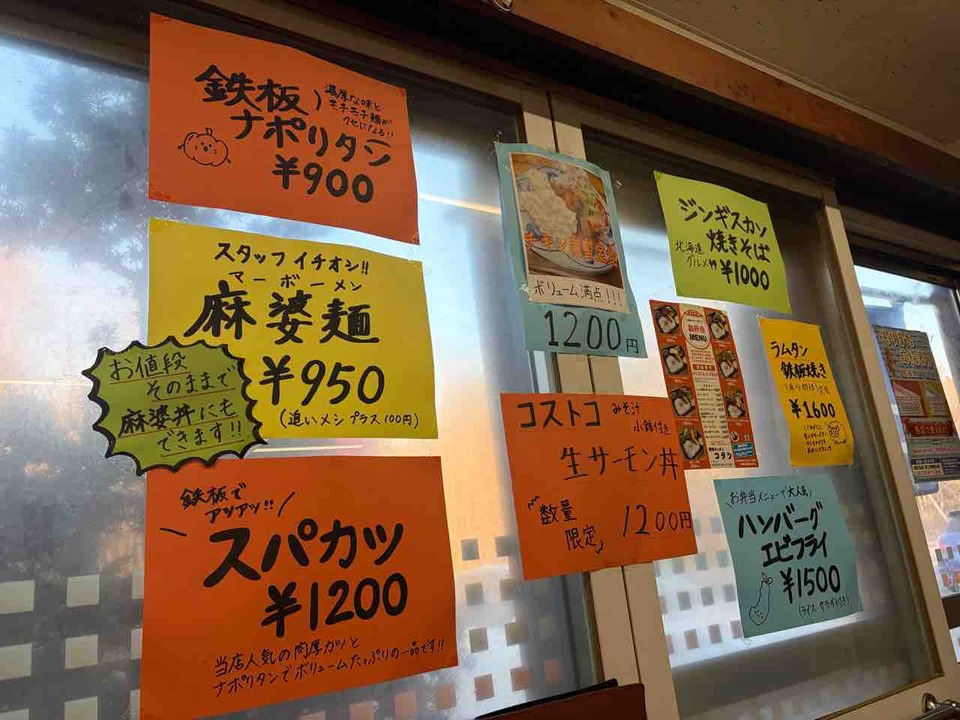 鉄板
ナポリタン
¥900
濃厚な味と
モチモチ麺が
クセになる!!
スタッフイチオシ!!
マーボーメン
麻婆麺
¥950
(追いメシプラス100円)
お値段
そのままで
麻婆丼にも
できます!!
鉄板で
アツアツ!!
スパカツ
¥1200
当店人気の肉厚カツと
ナポリタンでボリュームたっぷりの一品です!!
チキン南蛮定食
ボリューム満点!!!
1200円
コストコ
みそ汁
小鉢付き
生サーモン丼
数量
限定
1200円
ジンギスカン
焼きそば
北海道
グルメ!!
¥1000
お弁当
MENU
ラムタン
鉄板焼き
¥1600
お弁当メニューで大人気
ハンバーグ
エビフライ
¥1500
(ライス・サラダ付き)